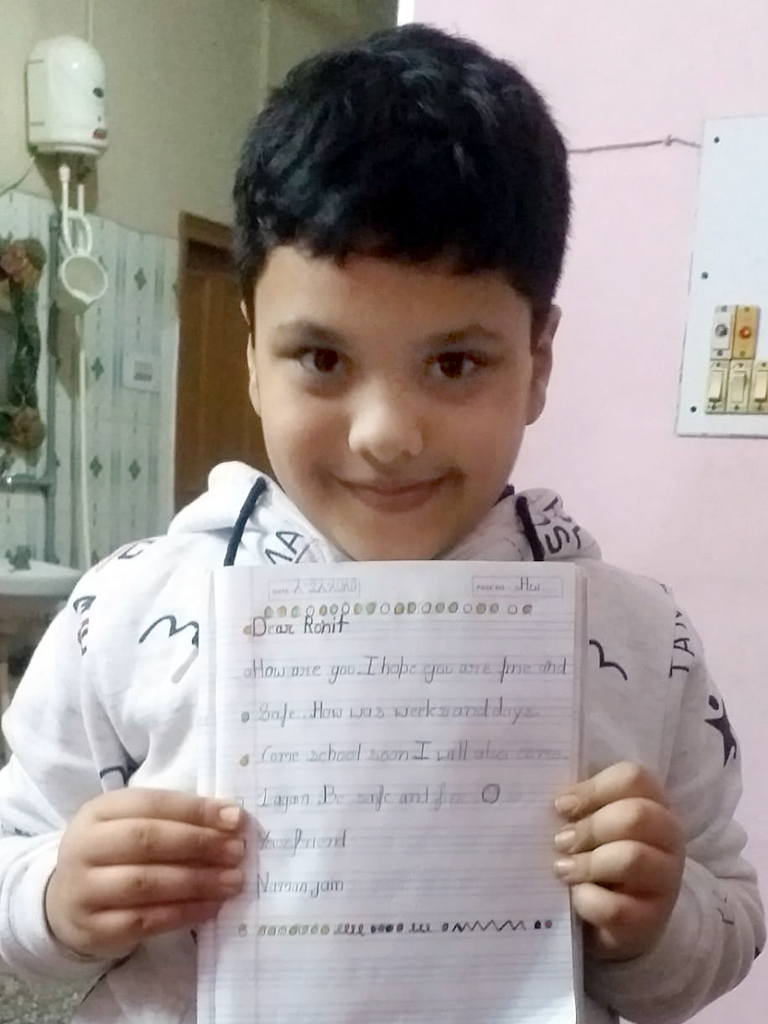 DATE 2.2.2020
PAGE NO. Hw
Dear Rohit
How are you. I hope you are fine and
Safe. How was weeks and days
Come school soon I will also come
Again Be safe and fine
Your friend
Naman jain
MA
TAN